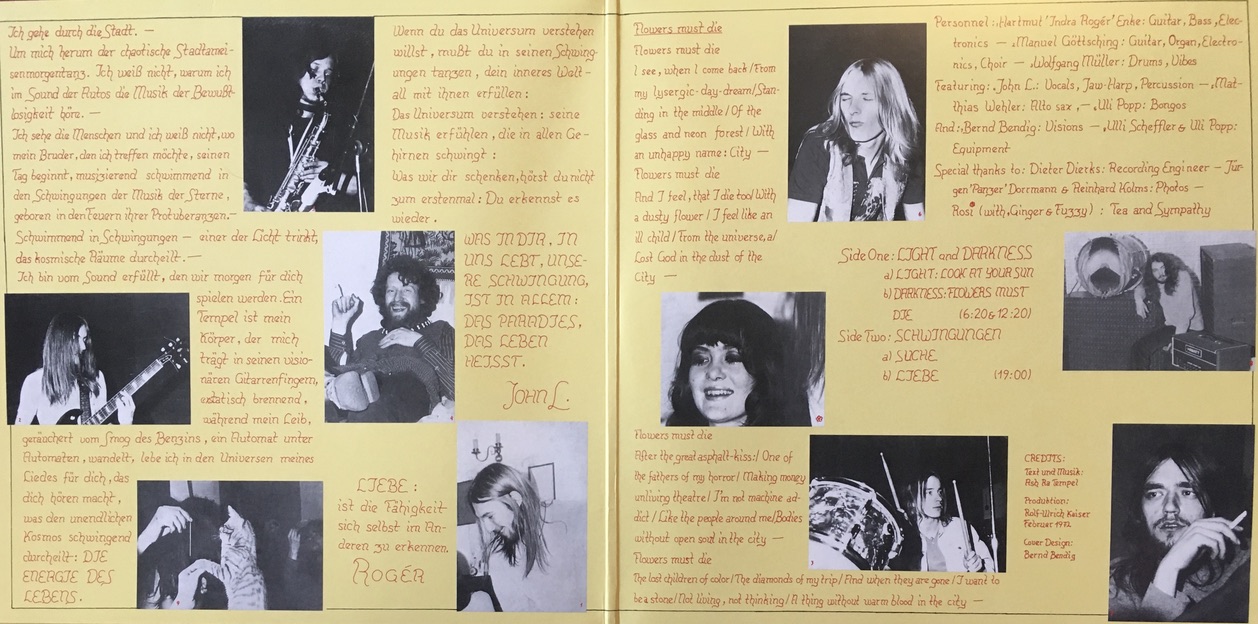 Ich gehe durch die Stadt. —
Um mich herum der chaotische Stadtamei-
senmorgentanz. Ich weiß nicht, warum ich
im Sound der Autos die Musik der Bewußt-
losigkeit höre. —
Ich sehe die Menschen und ich weiß nicht, wo
mein Bruder, den ich treffen möchte, seinen
Tag beginnt, musizierend schwimmend in
den Schwingungen der Musik der Sterne,
geboren in den Feuern ihrer Protuberanzen. —
Schwimmend in Schwingungen — einer der Licht trinkt,
das kosmische Räume durcheilt. —
Ich bin vom Sound erfüllt, den wir morgen für dich
spielen werden. Ein
Tempel ist mein
Körper, der mich
trägt in seinen visio-
nären Gitarrenfingern,
extatisch brennend,
während mein Leib,
geräuchert vom Smog des Benzins, ein Automat unter
Automaten, wandelt, lebe ich in den Universen meines
Liedes für dich, das
dich hören macht,
was den unendlichen
Kosmos schwingend
durcheilt: DIE
ENERGIE DES
LEBENS.
Wenn du das Universum verstehen
willst, mußt du in seinen Schwing-
ungen tanzen, dein inneres Welt-
all mit ihnen erfüllen:
Das Universum verstehen: seine
Musik erfühlen, die in allen Ge-
hirnen schwingt:
Was wir dir schenken, hörst du nicht
zum erstenmal: Du erkennst es
wieder.
WAS IN DIR, IN
UNS LEBT, UNSE-
RE SCHWINGUNG,
IST IN ALLEM:
DAS PARADIES,
DAS LEBEN
HEISST.
JOHN L.
LIEBE:
ist die Fähigkeit
sich selbst im An-
deren zu erkennen.
ROGÉR
Flowers must die
Flowers must die
I see, when I come back/From
my lysergic-day-dream/Stan-
ding in the middle/Of the
glass and neon forest/With
an unhappy name: City —
Flowers must die
And I feel, that I die too/With
a dusty flower/I feel like an
ill child/From the universe, a/
Lost God in the dust of the
City —
Flowers must die
After the great asphalt-kiss:/One of
the fathers of my horror/Making money
unliving theatre/I'm not machine ad-
dict/Like the people around me/Bodies
without open soul in the city —
Flowers must die
The lost children of color/The diamonds of my trip/And when they are gone/I want to
be a stone/Not living, not thinking/A thing without warm blood in the city —
Personnel: Hartmut 'Indra Rogér' Enke: Guitar, Bass, Elec-
tronics — Manuel Göttsching: Guitar, Organ, Electro-
nics, Choir — Wolfgang Müller: Drums, Vibes
Featuring: John L.: Vocals, Jaw-Harp, Percussion — Mat-
thias Wehler: Alto sax —, Uli Popp: Bongos
And: Bernd Bendig: Visions — Ulli Scheffler & Uli Popp:
Equipment
Special thanks to: Dieter Dierks: Recording Engineer — Jür-
gen 'Panzer' Dorrmann & Reinhard Kolms: Photos —
Rosi (with Ginger & Fuzzy): Tea and Sympathy
Side One: LIGHT and DARKNESS
a) LIGHT: LOOK AT YOUR SUN
b) DARKNESS: FLOWERS MUST
DIE (6:20 & 12:20)
Side Two: SCHWINGUNGEN
a) SUCHE
b) LIEBE (19:00)
CREDITS:
Text und Musik:
Ash Ra Tempel
Produktion:
Rolf-Ulrich Kaiser
Februar 1972
Cover Design:
Bernd Bendig